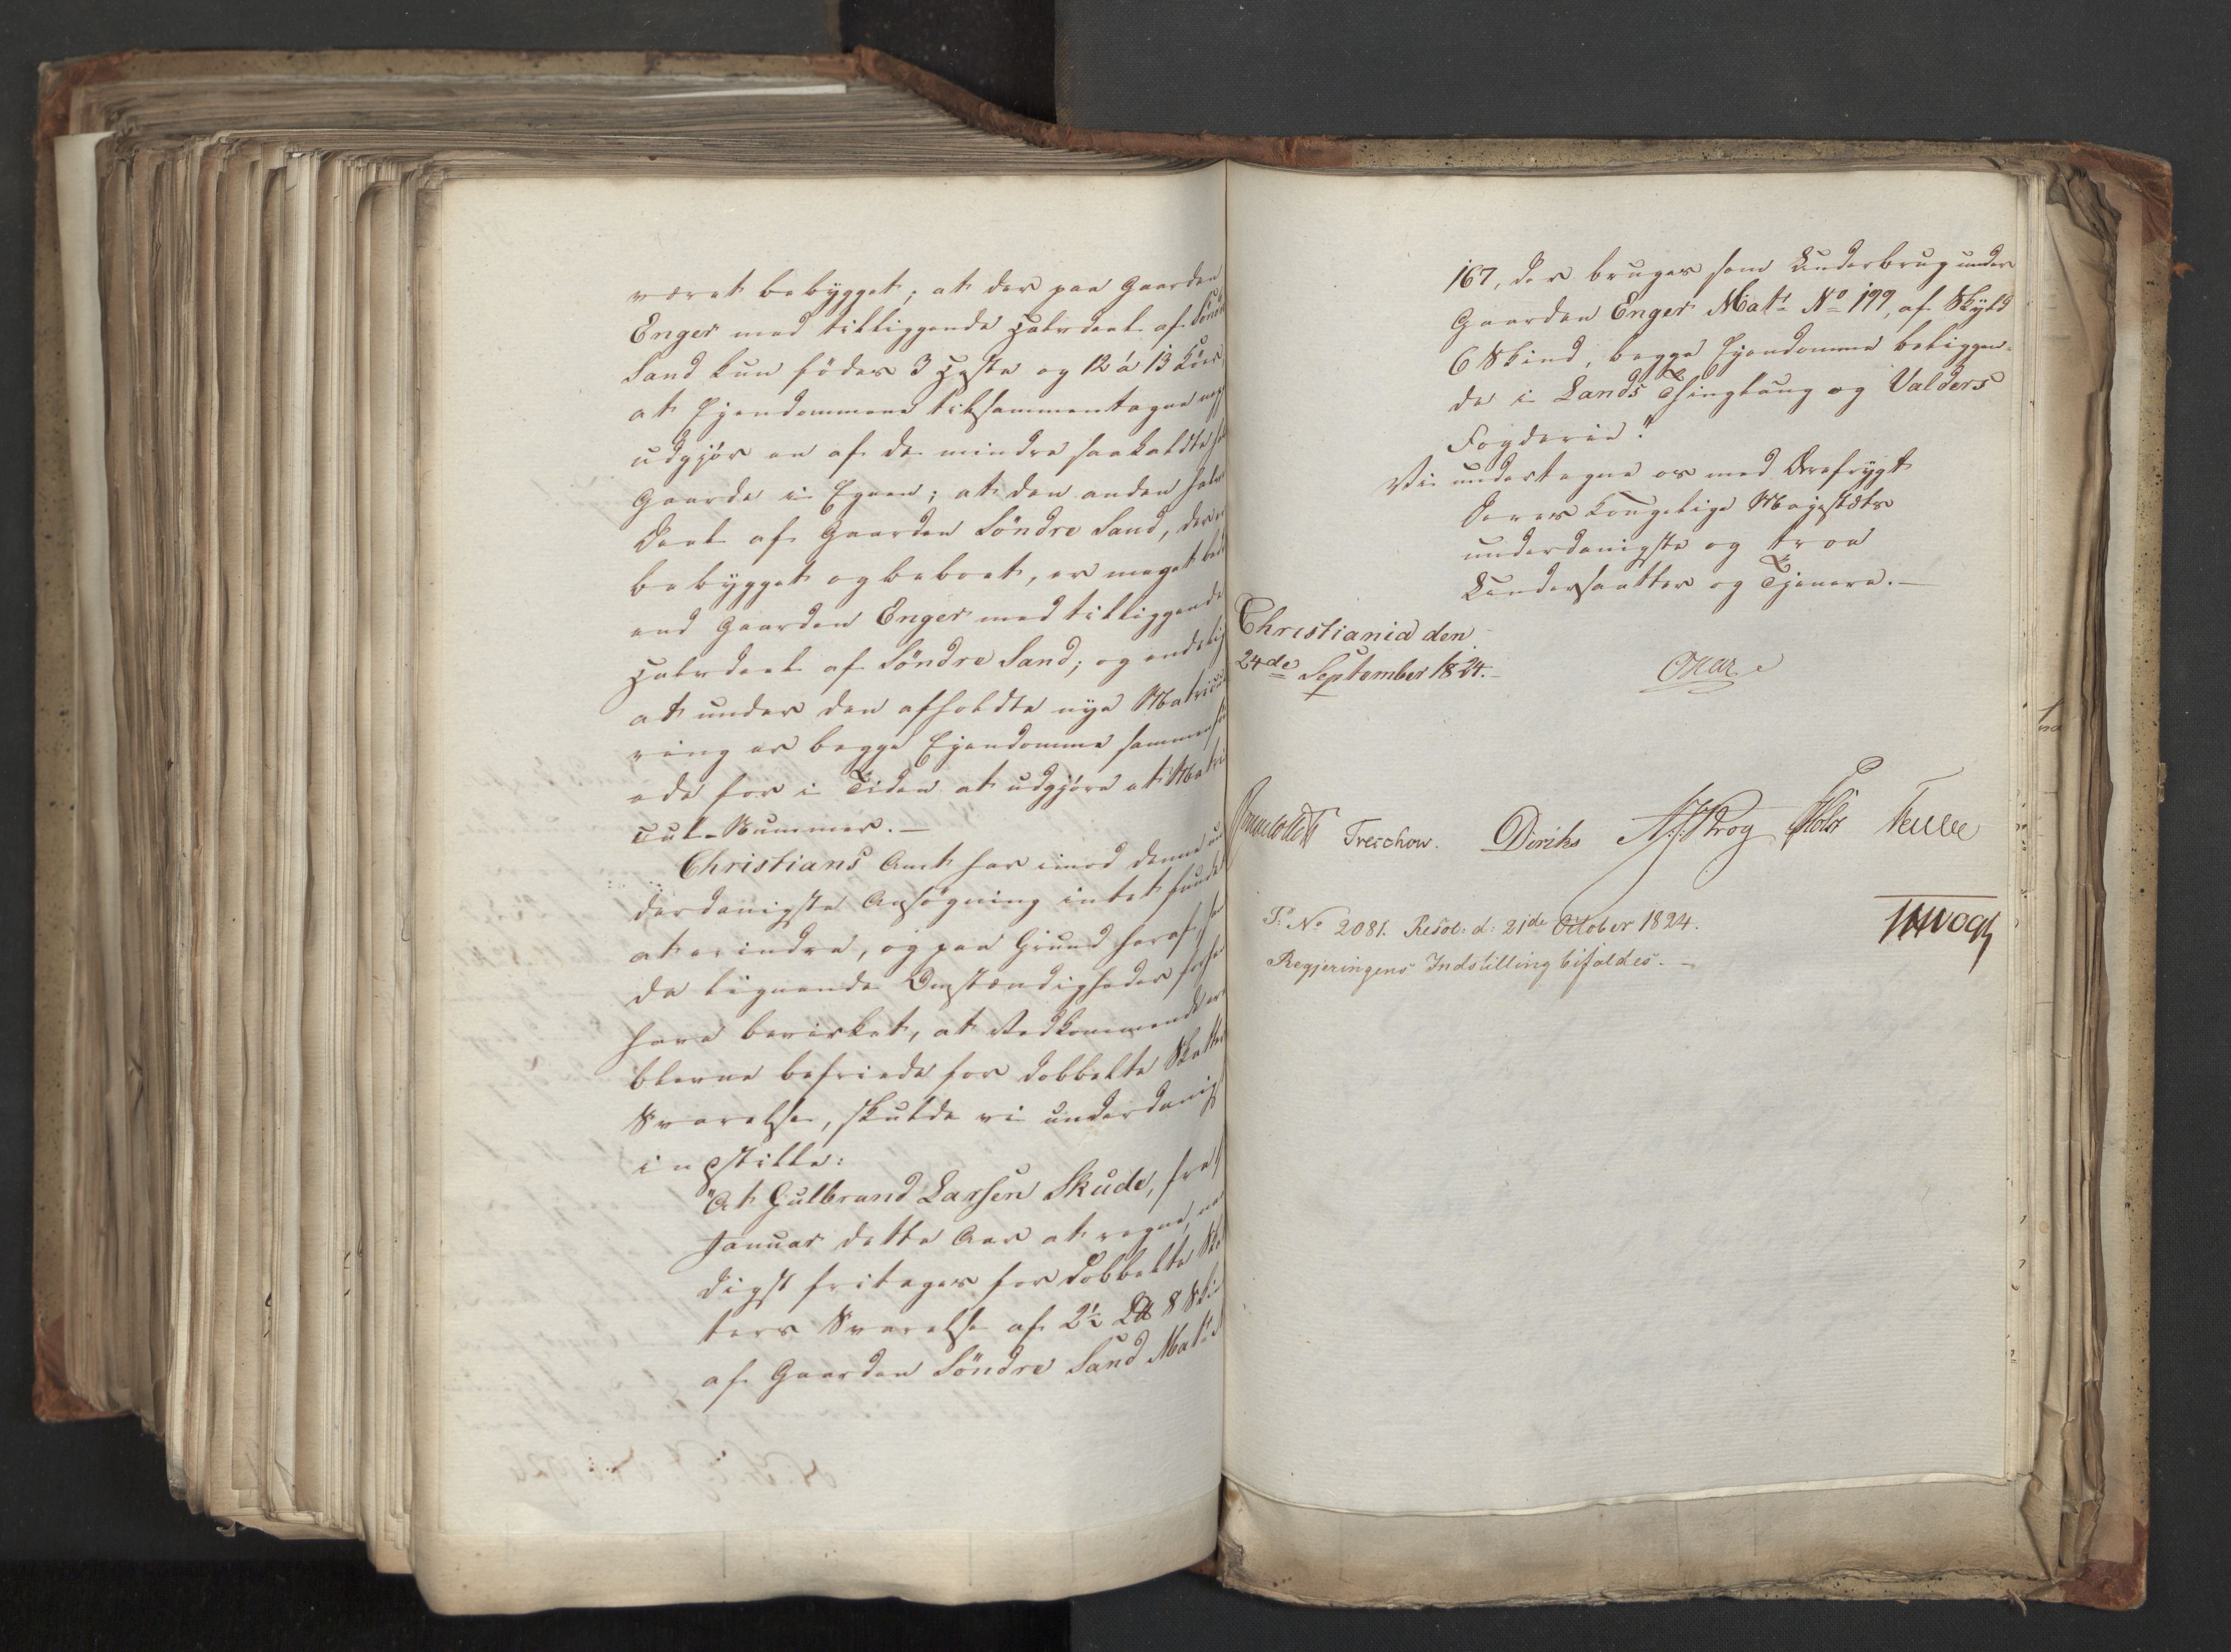 været bebygget; at der paa Gaarden
Enger med tilliggende Halvdeel af Söndr
Sand kun födes 3 Heste og 12 á 13 Köer,
at Ejendommene tilsammentagne
udgjör en af de mindre saakaldte
Gaarde i Egnen; at den anden Halv
Deel af Gaarden Söndre Sand, der er
bebygget og beboet, er meget bed
end Gaarden Enger med tilliggende
Halvdeel af Söndre Sand; og endelig
at under den afholdte nye Matricu
ring er begge Ejendomme sammen
ede for i Tiden at udgjöre et Matri
cul-Nummer.—
Christians Amt har imod denne un
derdanigste Ansögning intet fundet
at erindre, og paa Grund heraf,
da lignende Omstændigheder forhen
have bevirket, at Vedkommende ere
blevne befriede for dobbelte Skatters
Svarelse, skulde vi underdanigst
indstille:
"At Gulbrand Larsen Skude, fra 1
Januar dette Aar at regne, naa
digst fritages for dobbelte Skat
ters Svarelse af 2½ L℔ 8 Ski
af Gaarden Söndre Sand Matr
167, der bruges som Underbrug under
Gaarden Enger Matr. No 199, af Skyld
6 Skind, begge Ejendomme beliggen-
de i Lands Thinglaug og Valders
Fogderie."
Vi undertegne os med Ærefrygt
Deres Kongelige Majestæts
underdanigste og troe
Undersaatter og Tjenere.—
Christiania den
24de September 1824.-
Oscar
Treschow. Diriks Krog Holst
P. No 2081. Resol: d: 21de October 1824.
Vogt
Regjeringens Indstilling bifaldes.—